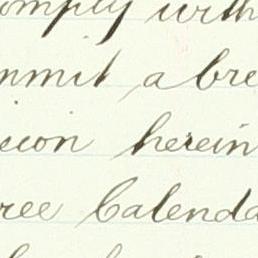 omply with
mmit a bre
sion herein
ree Calenda